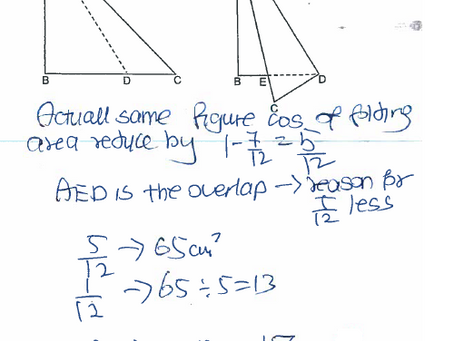 B D C
B E D
C
Actuall same figure cos of folding
area reduce by 1-7/12 = 5/12
AED is the overlap → reason for
5/12 less
5/12 → 65cm²
1/12 → 65÷5=13